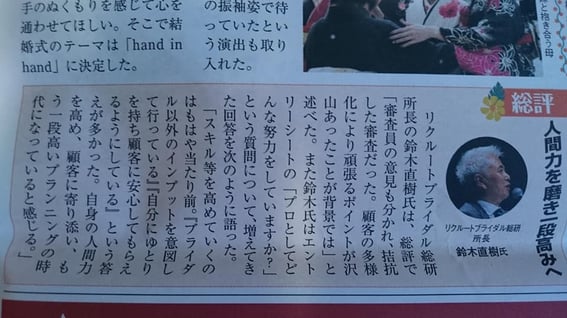 手のぬくもりを感じて心を
通わせてほしい。そこで結
婚式のテーマは「hand in
hand」に決定した。
の振袖姿で待
っていたとい
う演出も取り
入れた。
と抱き合う母
総評
人間力を磨き一段高みへ
リクルートブライダル総研
所長
鈴木直樹氏
リクルートブライダル総研
所長の鈴木直樹氏は、総評で
「審査員の意見も分かれ、拮抗
した審査だった。顧客の多様
化により頑張るポイントが沢
山あったことが背景では」と
述べた。また鈴木氏はエント
リーシートの「プロとしてど
んな努力をしていますか？」
という質問について、増えてき
た回答を次のように語った。
「スキル等を高めていくの
はもはや当たり前。『ブライダ
ル以外のインプットを意図し
て行っている』『自分にゆとり
を持ち顧客に安心してもらえ
るようにしている』という答
えが多かった。自身の人間力
を高め、顧客に寄り添い、も
う一段高いプランニングの時
代になっていると感じる。」